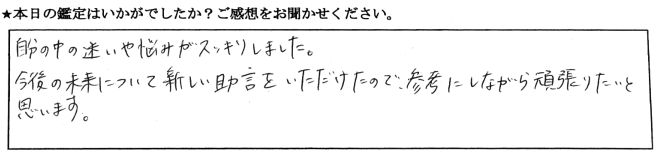 ★本日の鑑定はいかがでしたか？ご感想をお聞かせください。
自分の中の迷いや悩みがスッキリしました。
今後の未来について新しい助言をいただけたので、参考にしながら頑張りたいと
思います。